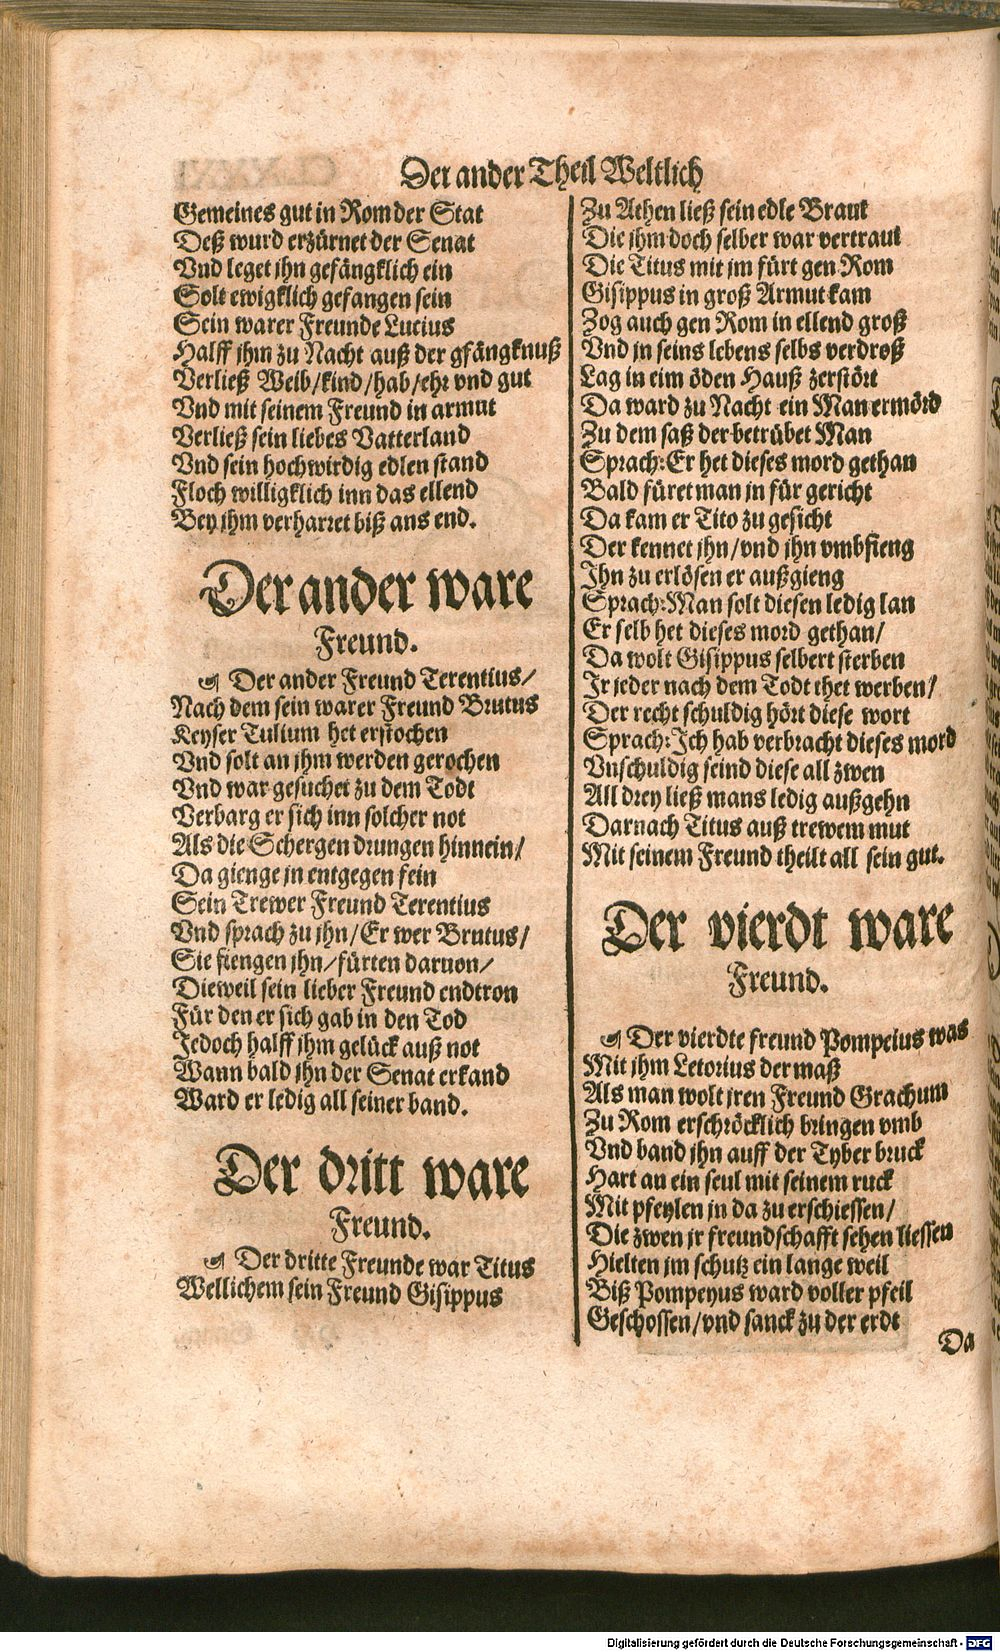 Der ander Theil Weltlich
Gemeines gut in Rom der Stat
Deß wurd erzürnet der Senat
Vnd leget jhn gefängklich ein
Solt ewigklich gefangen sein
Sein warer Freunde Lucius
Halff jhm zu Nacht auß der gfängknuß
Verließ Weib/kind/hab/ehr vnd gut
Vnd mit seinem Freund in armut
Verließ sein liebes Vatterland
Vnd sein hochwirdig edlen stand
Floch willigklich inn das ellend
Bey jhm verharret biß ans end.
Der ander ware
Freund.
Der ander Freund Terentius/
Nach dem sein warer Freund Brutus
Keyser Tulium het erstochen
Vnd solt an jhm werden gerochen
Vnd war gesuchet zu dem Todt
Verbarg er sich inn solcher not
Als die Schergen drungen hinnein/
Da gienge jn entgegen fein
Sein Trewer Freund Terentius
Vnd sprach zu jhn/Er wer Brutus/
Sie fiengen jhn/fürten daruon/
Dieweil sein lieber Freund endtron
Für den er sich gab in den Tod
Jedoch halff jhm gelück auß not
Wann bald jhn der Senat erkand
Ward er ledig all seiner band.
Der dritt ware
Freund.
Der dritte Freunde war Titus
Wellichem sein Freund Gisippus
Zu Athen ließ sein edle Braut
Die jhm doch selber war vertraut
Die Titus mit jm fürt gen Rom
Gisippus in groß Armut kam
Zog auch gen Rom in ellend groß
Vnd jn seins lebens selbs verdroß
Lag in eim öden Hauß zerstört
Da ward zu Nacht ein Man ermörd
Zu dem saß der betrübet Man
Sprach: Er het dieses mord gethan
Bald füret man jn für gericht
Da kam er Tito zu gesicht
Der kennet jhn/vnd jhn vmbfieng
Ihn zu erlösen er außgieng
Sprach: Man solt diesen ledig lan
Er selb het dieses mord gethan/
Da wolt Gisippus selbert sterben
Ir jeder nach dem Todt thet werben/
Der recht schuldig hört diese wort
Sprach: Ich hab verbracht dieses mord
Vnschuldig seind diese all zwen
All drey ließ mans ledig außgehn
Darnach Titus auß trewem mut
Mit seinem Freund theilt all sein gut.
Der vierdt ware
Freund.
Der vierdte freund Pompeius was
Mit jhm Letorius der maß
Als man wolt jren Freund Grachum
Zu Rom erschröcklich bringen vmb
Vnd band jhn auff der Tyber bruck
Hart an ein seul mit seinem ruck
Mit pfeylen jn da zu erschiessen/
Die zwen jr freundschafft sehen liessen
Hielten jm schutz ein lange weil
Biß Pompeyus ward voller pfeil
Geschossen/vnd sanck zu der erdt
Da
Digitalisierung gefördert durch die Deutsche Forschungsgemeinschaft - DFG